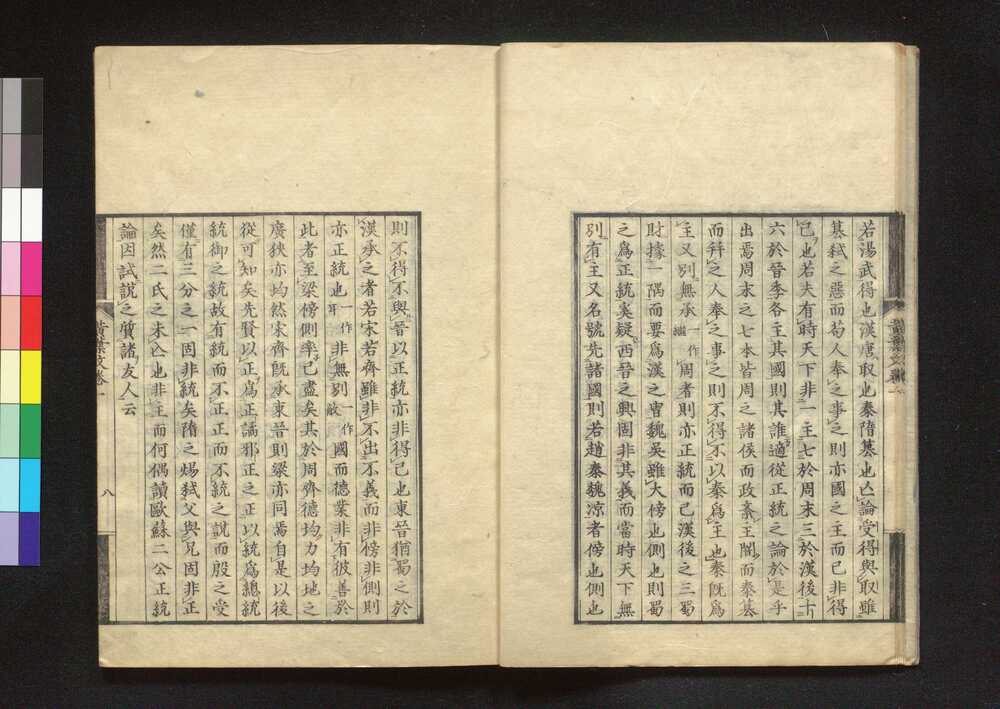 若湯武得也漢唐取也秦隋簒也亡論受得與取雖
簒弒之惡而苟人奉之事之則亦國之主而已非得
已也若夫有時天下非一主七於周末三於漢後十
六於晉季各主其國則其誰適從正統之論於是乎
出焉周末之七本皆周之諸侯而政紊王闇而秦簒
而幷之人奉之事之則不得不以秦爲主也秦旣爲
主又別無承一作繼周者則亦正統而已漢後之三蜀
財據一隅而要爲漢之曺魏吳雖大傍也側也則蜀
之爲正統奚疑西晉之興固非其義而當時天下無
別有主又名號先諸國則若趙秦魏涼者傍也側也
則不得不與晉以正統亦非得已也東晉猶蜀之於
漢承之者若宋若齊雖非不出不義而非傍非側則
亦正統也一作耳非無別一作故國而德業非有彼善於
此者至梁傍側率已盡矣其於周齊德均力均地之
廣狹亦均然宋齊旣承東晉則梁亦同焉自是以後
從可知矣先賢以正爲正譎邪正之正以統爲總統
統御之統故有統而不正正而不統之說而殷之受
僅有三分之一固非統矣隋之煬弒父與兄固非正
矣然二氏之未亡也非主而何偶讀歐蘇二公正統
論因試說之質諸友人云
黃葉文卷一
八